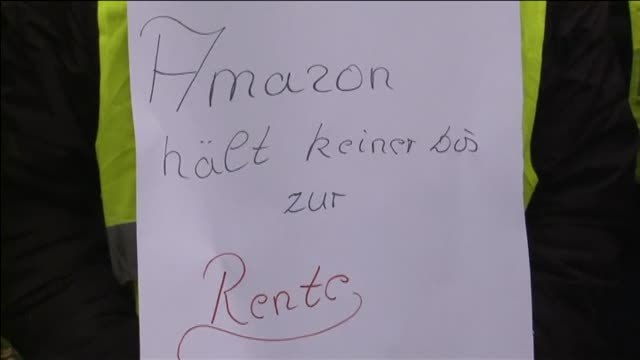 Amazon
hält keiner bis
zur
Rente